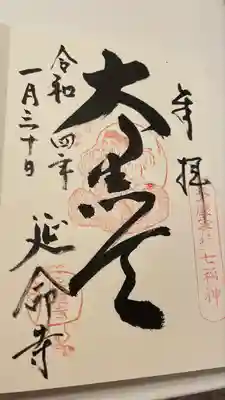 奉拝
七福神
大黒天
令和四年
一月三十日
延命寺